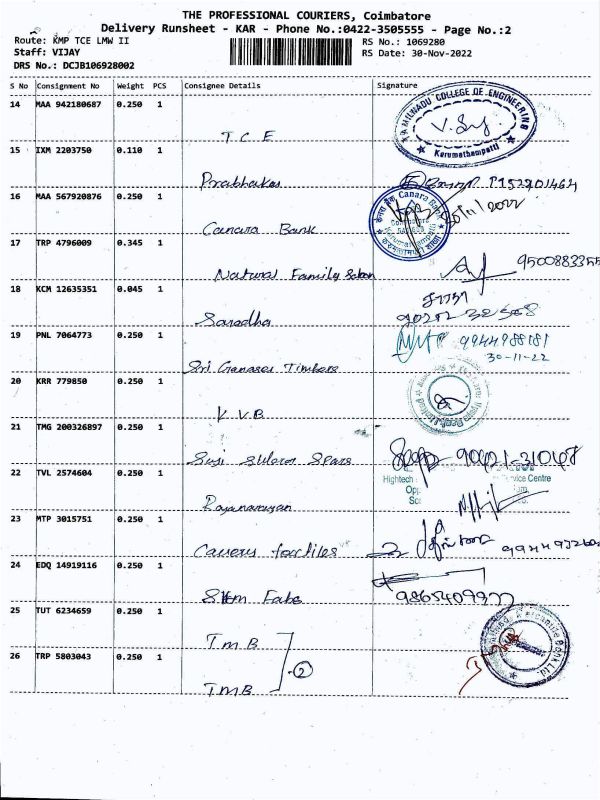 THE PROFESSIONAL COURIERS, Coimbatore
Delivery Runsheet - KAR - Phone No.:0422-3505555 - Page No.:2
Route: KMP TCE LMW II
RS No.: 1069280
Staff: VIJAY
RS Date: 30-Nov-2022
DRS No.: DCJB106928002
S No Consignment No Weight PCS Consignee Details Signature
14 MAA 942180687 0.250 1
T.C.E
COLLEGE OF ENGINEERING
Karumathampatti
15 IXM 2203750 0.110 1
Prabhakar
16 MAA 567920876 0.250 1
Canara Bank
Canara Bank
17 TRP 4796009 0.345 1
Natural Family Salon
9500883355
18 KCM 12635351 0.045 1
Saradha
19 PNL 7064773 0.250 1
Sri Ganasar Timbers
9944988181
30-11-22
20 KRR 779850 0.250 1
K V B
21 TMG 200326897 0.250 1
22 TVL 2574604 0.250 1
Rajanarayan
Hightech
Service Centre
23 MTP 3015751 0.250 1
24 EDQ 14919116 0.250 1
25 TUT 6234659 0.250 1
T M B
26 TRP 5803043 0.250 1
T M B
2